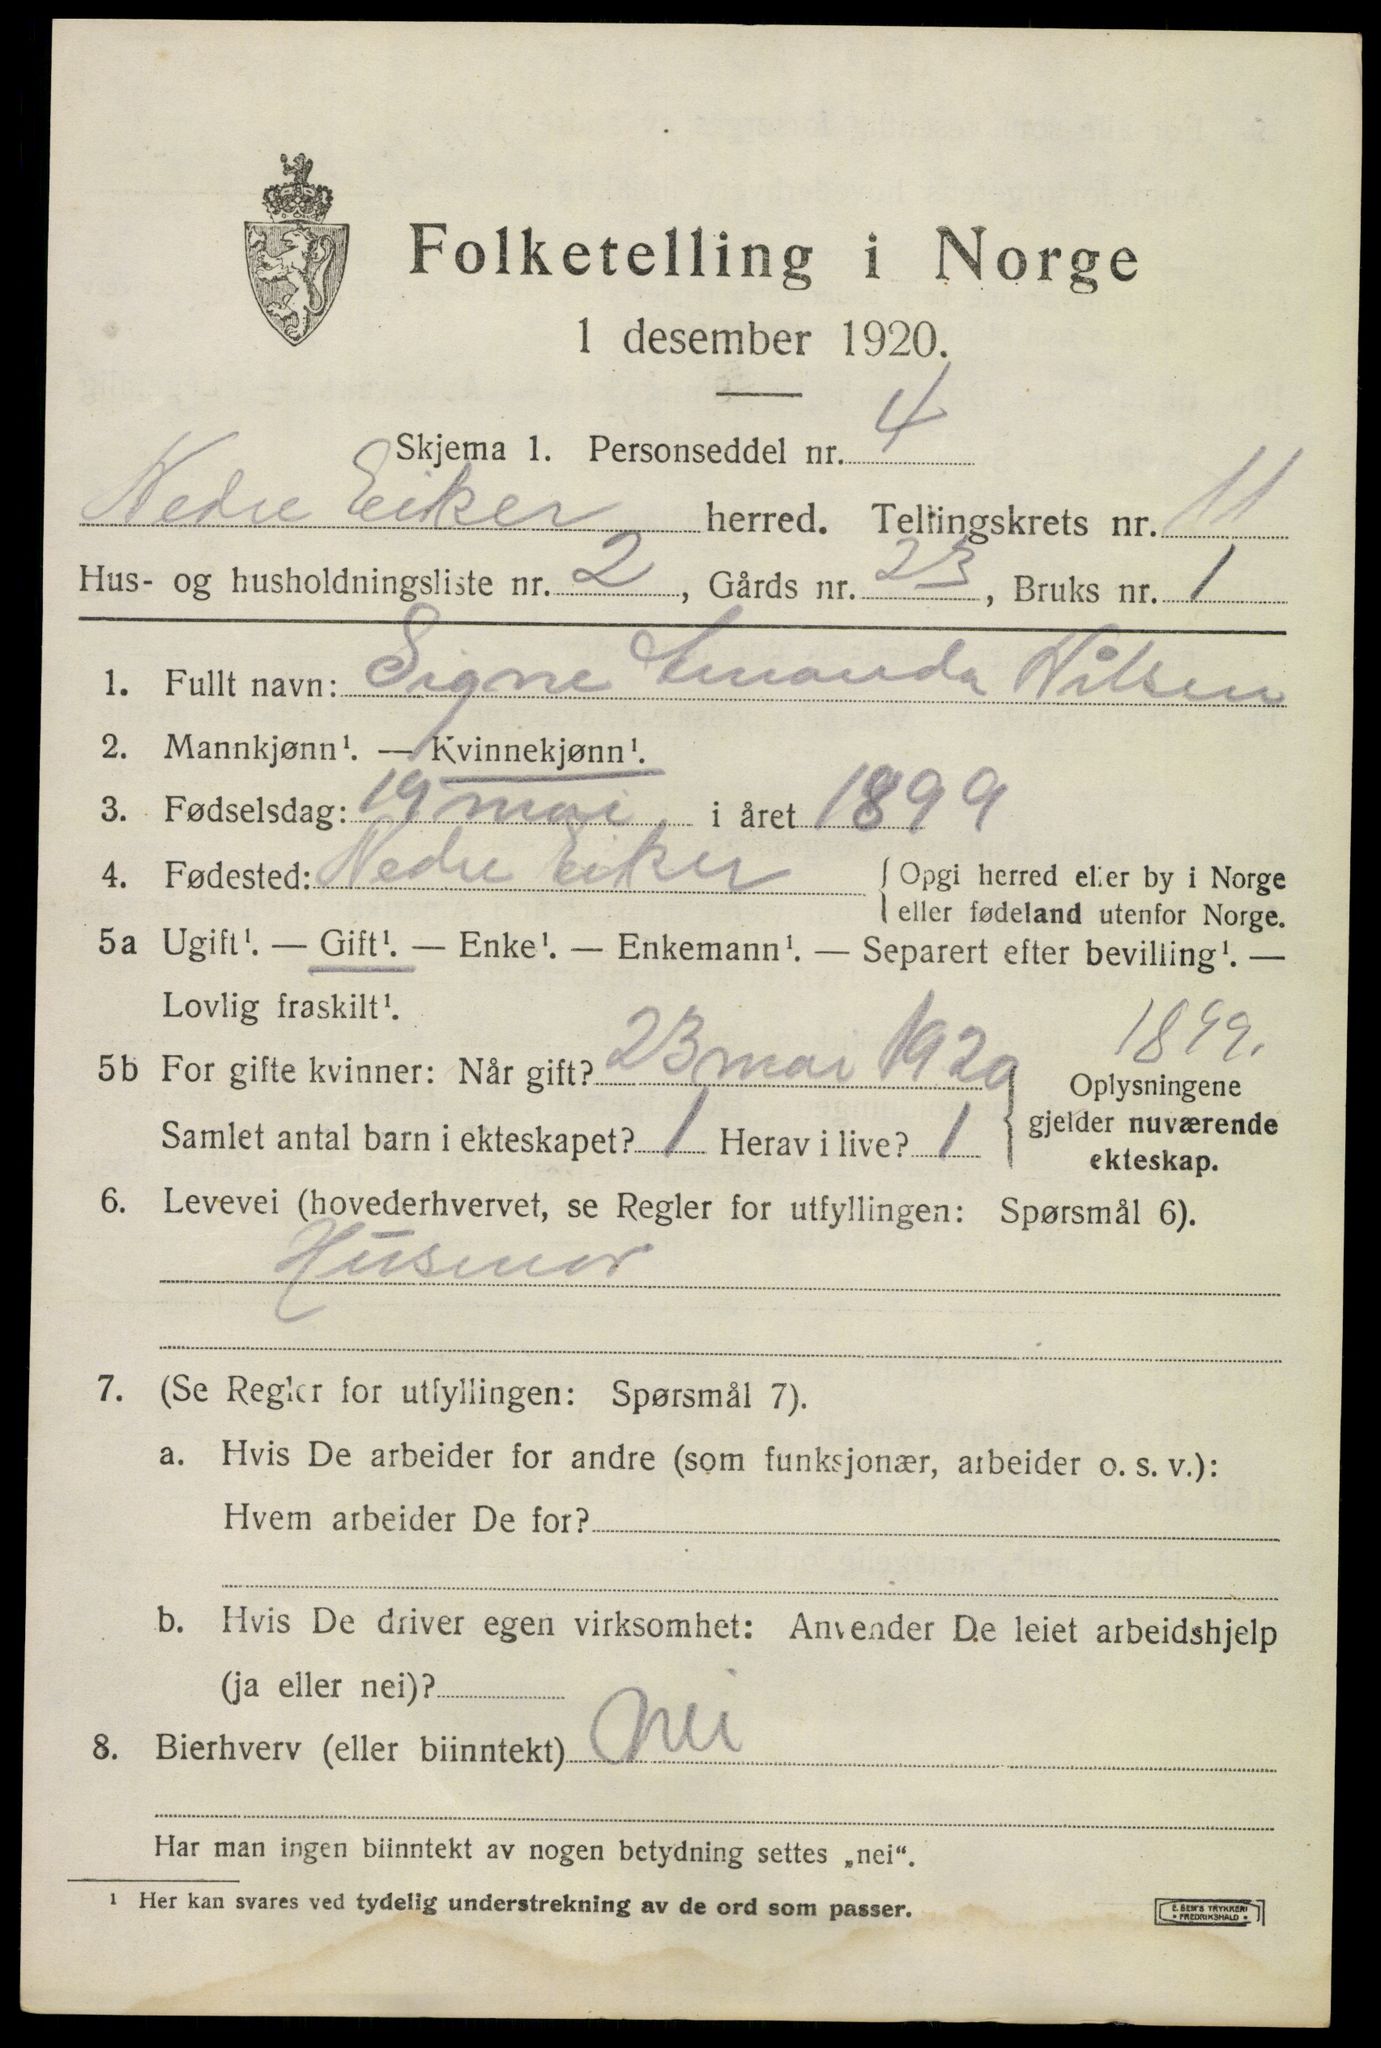 Folketelling i Norge
1 desember 1920.
Skjema 1. Personseddel nr. 4
Nedre Eiker herred. Tellingskrets nr. 11
Hus- og husholdningsliste nr. 2, Gårds nr. 23, Bruks nr. 1
1. Fullt navn: Signe Amanda Nilsen
2. Mannkjønn¹. — Kvinnekjønn¹.
3. Fødselsdag: 19 mai i året 1899
4. Fødested: Nedre Eiker { Opgi herred eller by i Norge
eller fødeland utenfor Norge.
5a Ugift¹. — Gift¹. — Enke¹. — Enkemann¹. — Separert efter bevilling¹. —
Lovlig fraskilt¹.
1899.
5b For gifte kvinner: Når gift? 23 mai 1920 } Oplysningene
gjelder nuværende
Samlet antal barn i ekteskapet? 1 Herav i live? 1
ekteskap.
6. Levevei (hovederhvervet, se Regler for utfyllingen: Spørsmål 6).
Husmor
7. (Se Regler for utfyllingen: Spørsmål 7).
a. Hvis De arbeider for andre (som funksjonær, arbeider o. s. v.):
Hvem arbeider De for?
b. Hvis De driver egen virksomhet: Anvender De leiet arbeidshjelp
(ja eller nei)?
8. Bierhverv (eller biinntekt) Nei
Har man ingen biinntekt av nogen betydning settes „nei“.
¹ Her kan svares ved tydelig understrekning av de ord som passer.
E. SEM'S TRYKKERI
• FREDRIKSHALD •